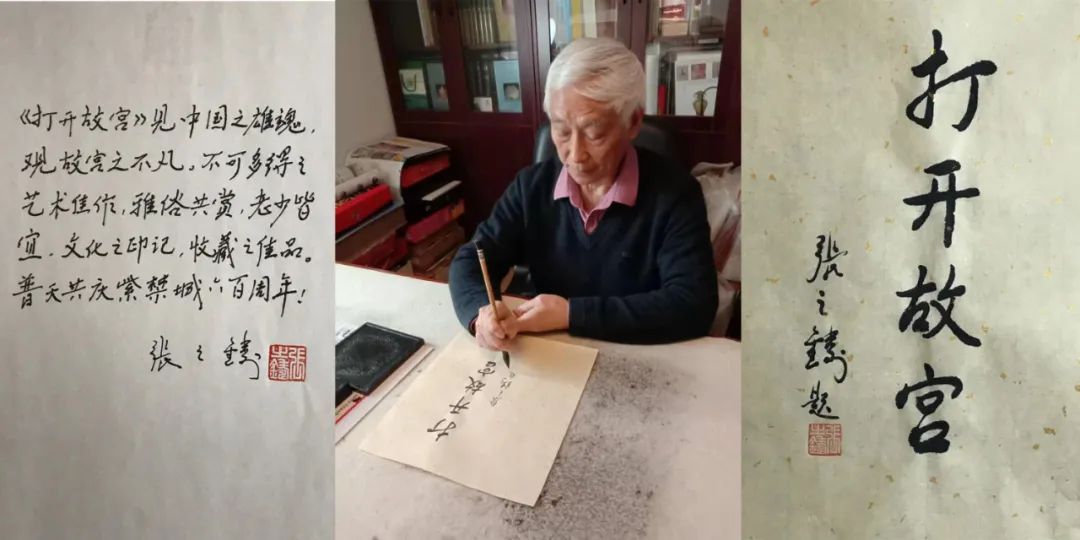 《打开故宫》见中国之雄魂,
观故宫之不凡。不可多得之
艺术佳作,雅俗共赏,老少皆
宜、文化之印记,收藏之佳品。
普天共庆紫禁城六百周年!
张之鑄
张之鑄
打开故宫
打开故宫
張之鑄题
张之鑄